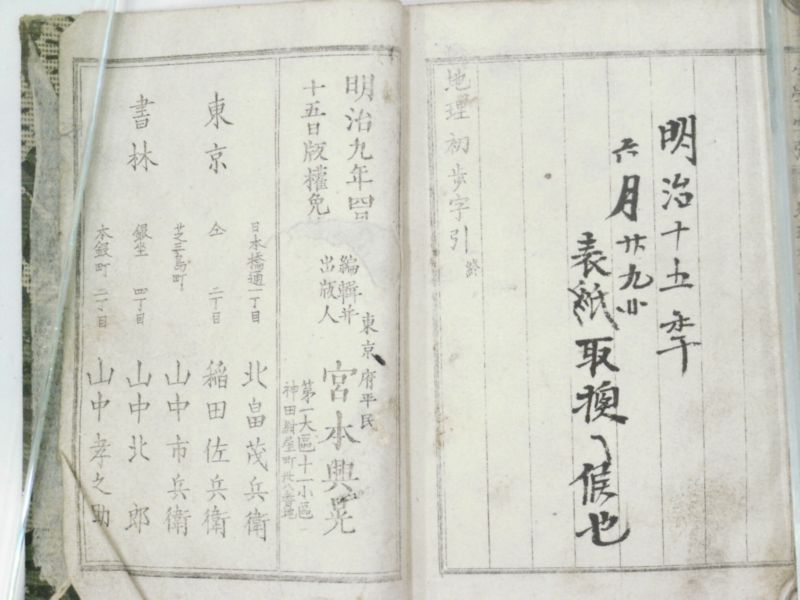 明治十五年
六月廿九日
表紙取換候也
地理初歩字引 終
明治九年四月
十五日版權免
編輯并
出版人
東京府平民
宮本興晃
第一大區十一小區
神田紺屋町
東京
書林
日本橋通一丁目 北畠茂兵衛
仝 二丁目 稲田佐兵衛
芝三島町 山中市兵衛
銀坐四丁目 山中北郎
本銀町二丁目 山中孝之助